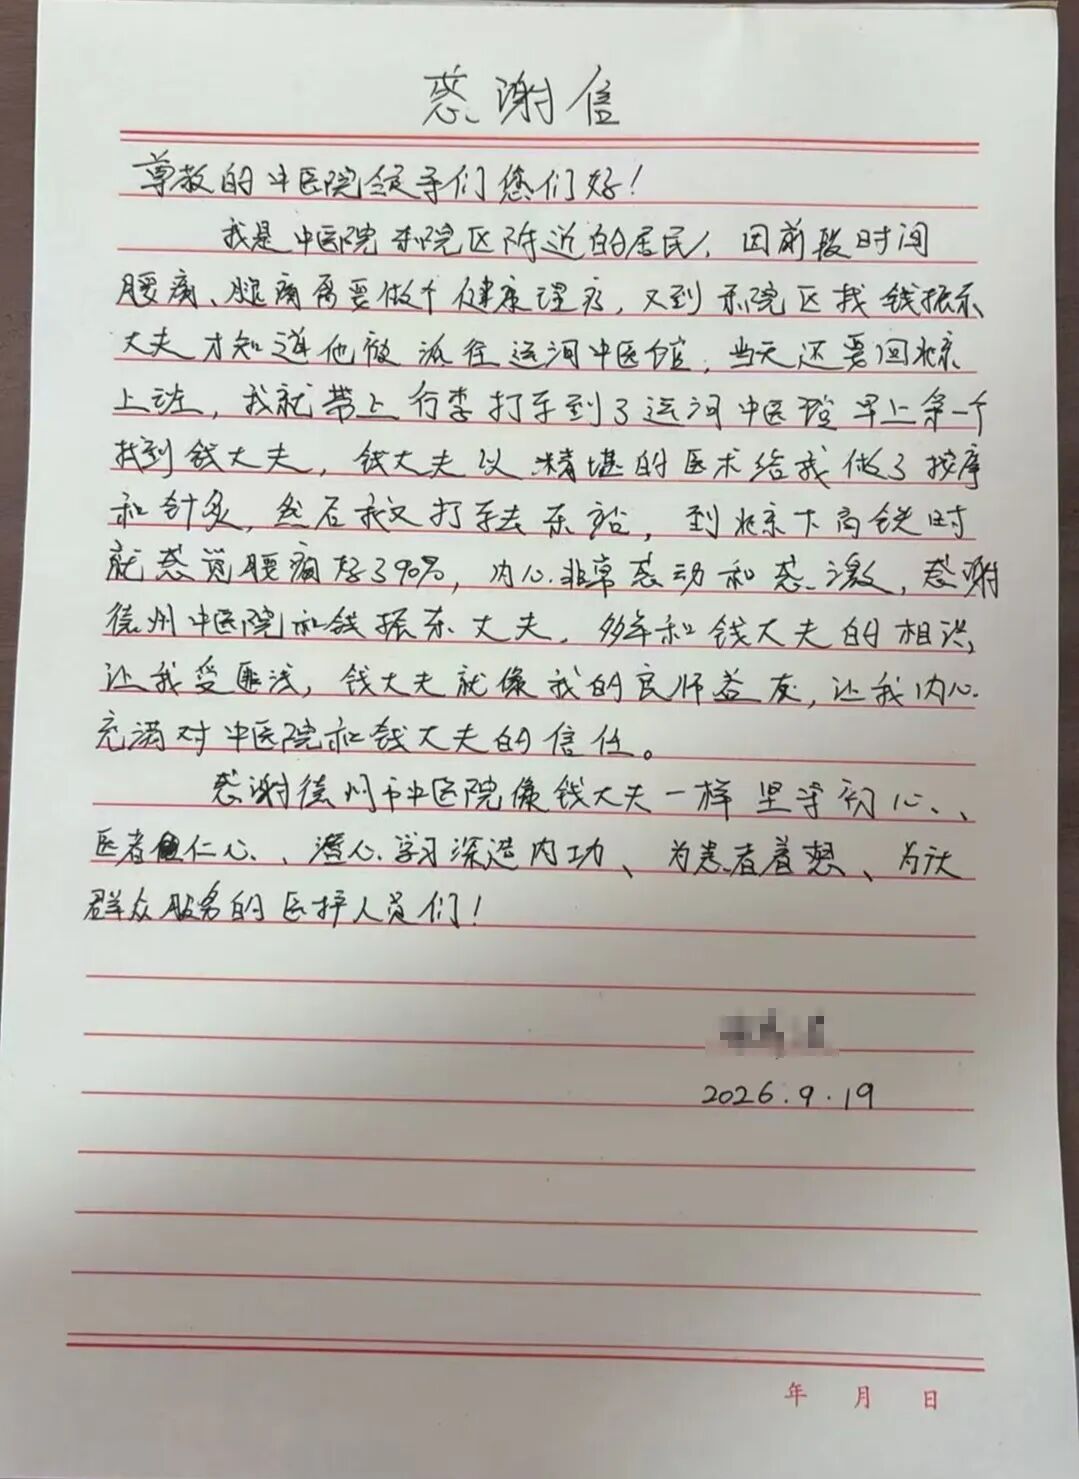 感谢信
尊敬的中医院领导们您们好！
我是中医院东院区附近的居民，因前段时间
腰痛、腿痛需要做个健康理疗，又到东院区找钱振东
大夫才知道他被派往运河中医馆，当天还要回北京
上班，我就带上行李打车到了运河中医馆早上第一个
找到钱大夫，钱大夫以精堪的医术给我做了按摩
和针灸，然后我又打车去东站，到北京下高铁时
就感觉腰痛好了90%，内心非常感动和感激，感谢
德州中医院和钱振东大夫，多年和钱大夫的相识，
让我受匪浅，钱大夫就像我的良师益友，让我内心
充满对中医院和钱大夫的信任。
感谢德州市中医院像钱大夫一样坚守初心、
医者仁心、潜心学习深造内功、为患者着想、为
群众服务的医护人员们！
2026.9.19
年 月 日